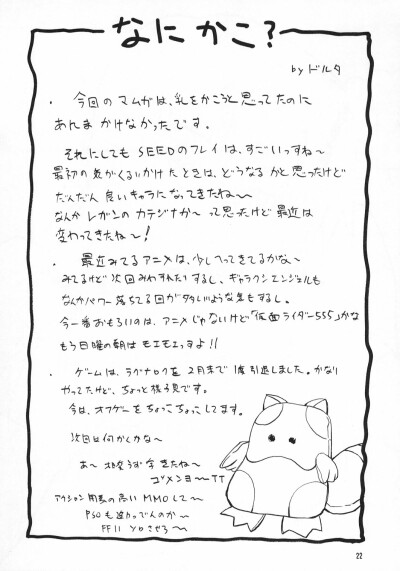 なにかこ?
by ドルタ
・今回のマムガは、乳をかこうと思ってたのに
あんまかけなかったです。
それにしてもSEEDのフレイは、すごいっすね〜
最初の気がくるいかけたときは、どうなるかと思ったけど
だんだん良いキャラになってきたね〜〜
なんかレガンのカテジナか〜って思ったけど最近は
変わってきたね〜!
・最近みてるアニメは、少しへってきてるかな〜
みてるけど次回みわすれたりするし、ギャラクシエンジェルも
なんかパワー落ちてる回が多いような気もするし。
今一番おもろいのは、アニメじゃないけど「仮面ライダー555」かな
もう日曜の朝はモエモエっすよ!!
・ゲームは、ラグナロクを2月まで1度引退しました。かなり
やってたけど、ちょっと様子見です。
今は、オフゲーをちょっこちょっこしてます。
次回は何かくかな〜
あ〜 相変らず字きたね〜
ゴメンヨ〜〜TT
アクション要素の高いMMOして〜〜
PSOも違ったんのか〜
FF11
22